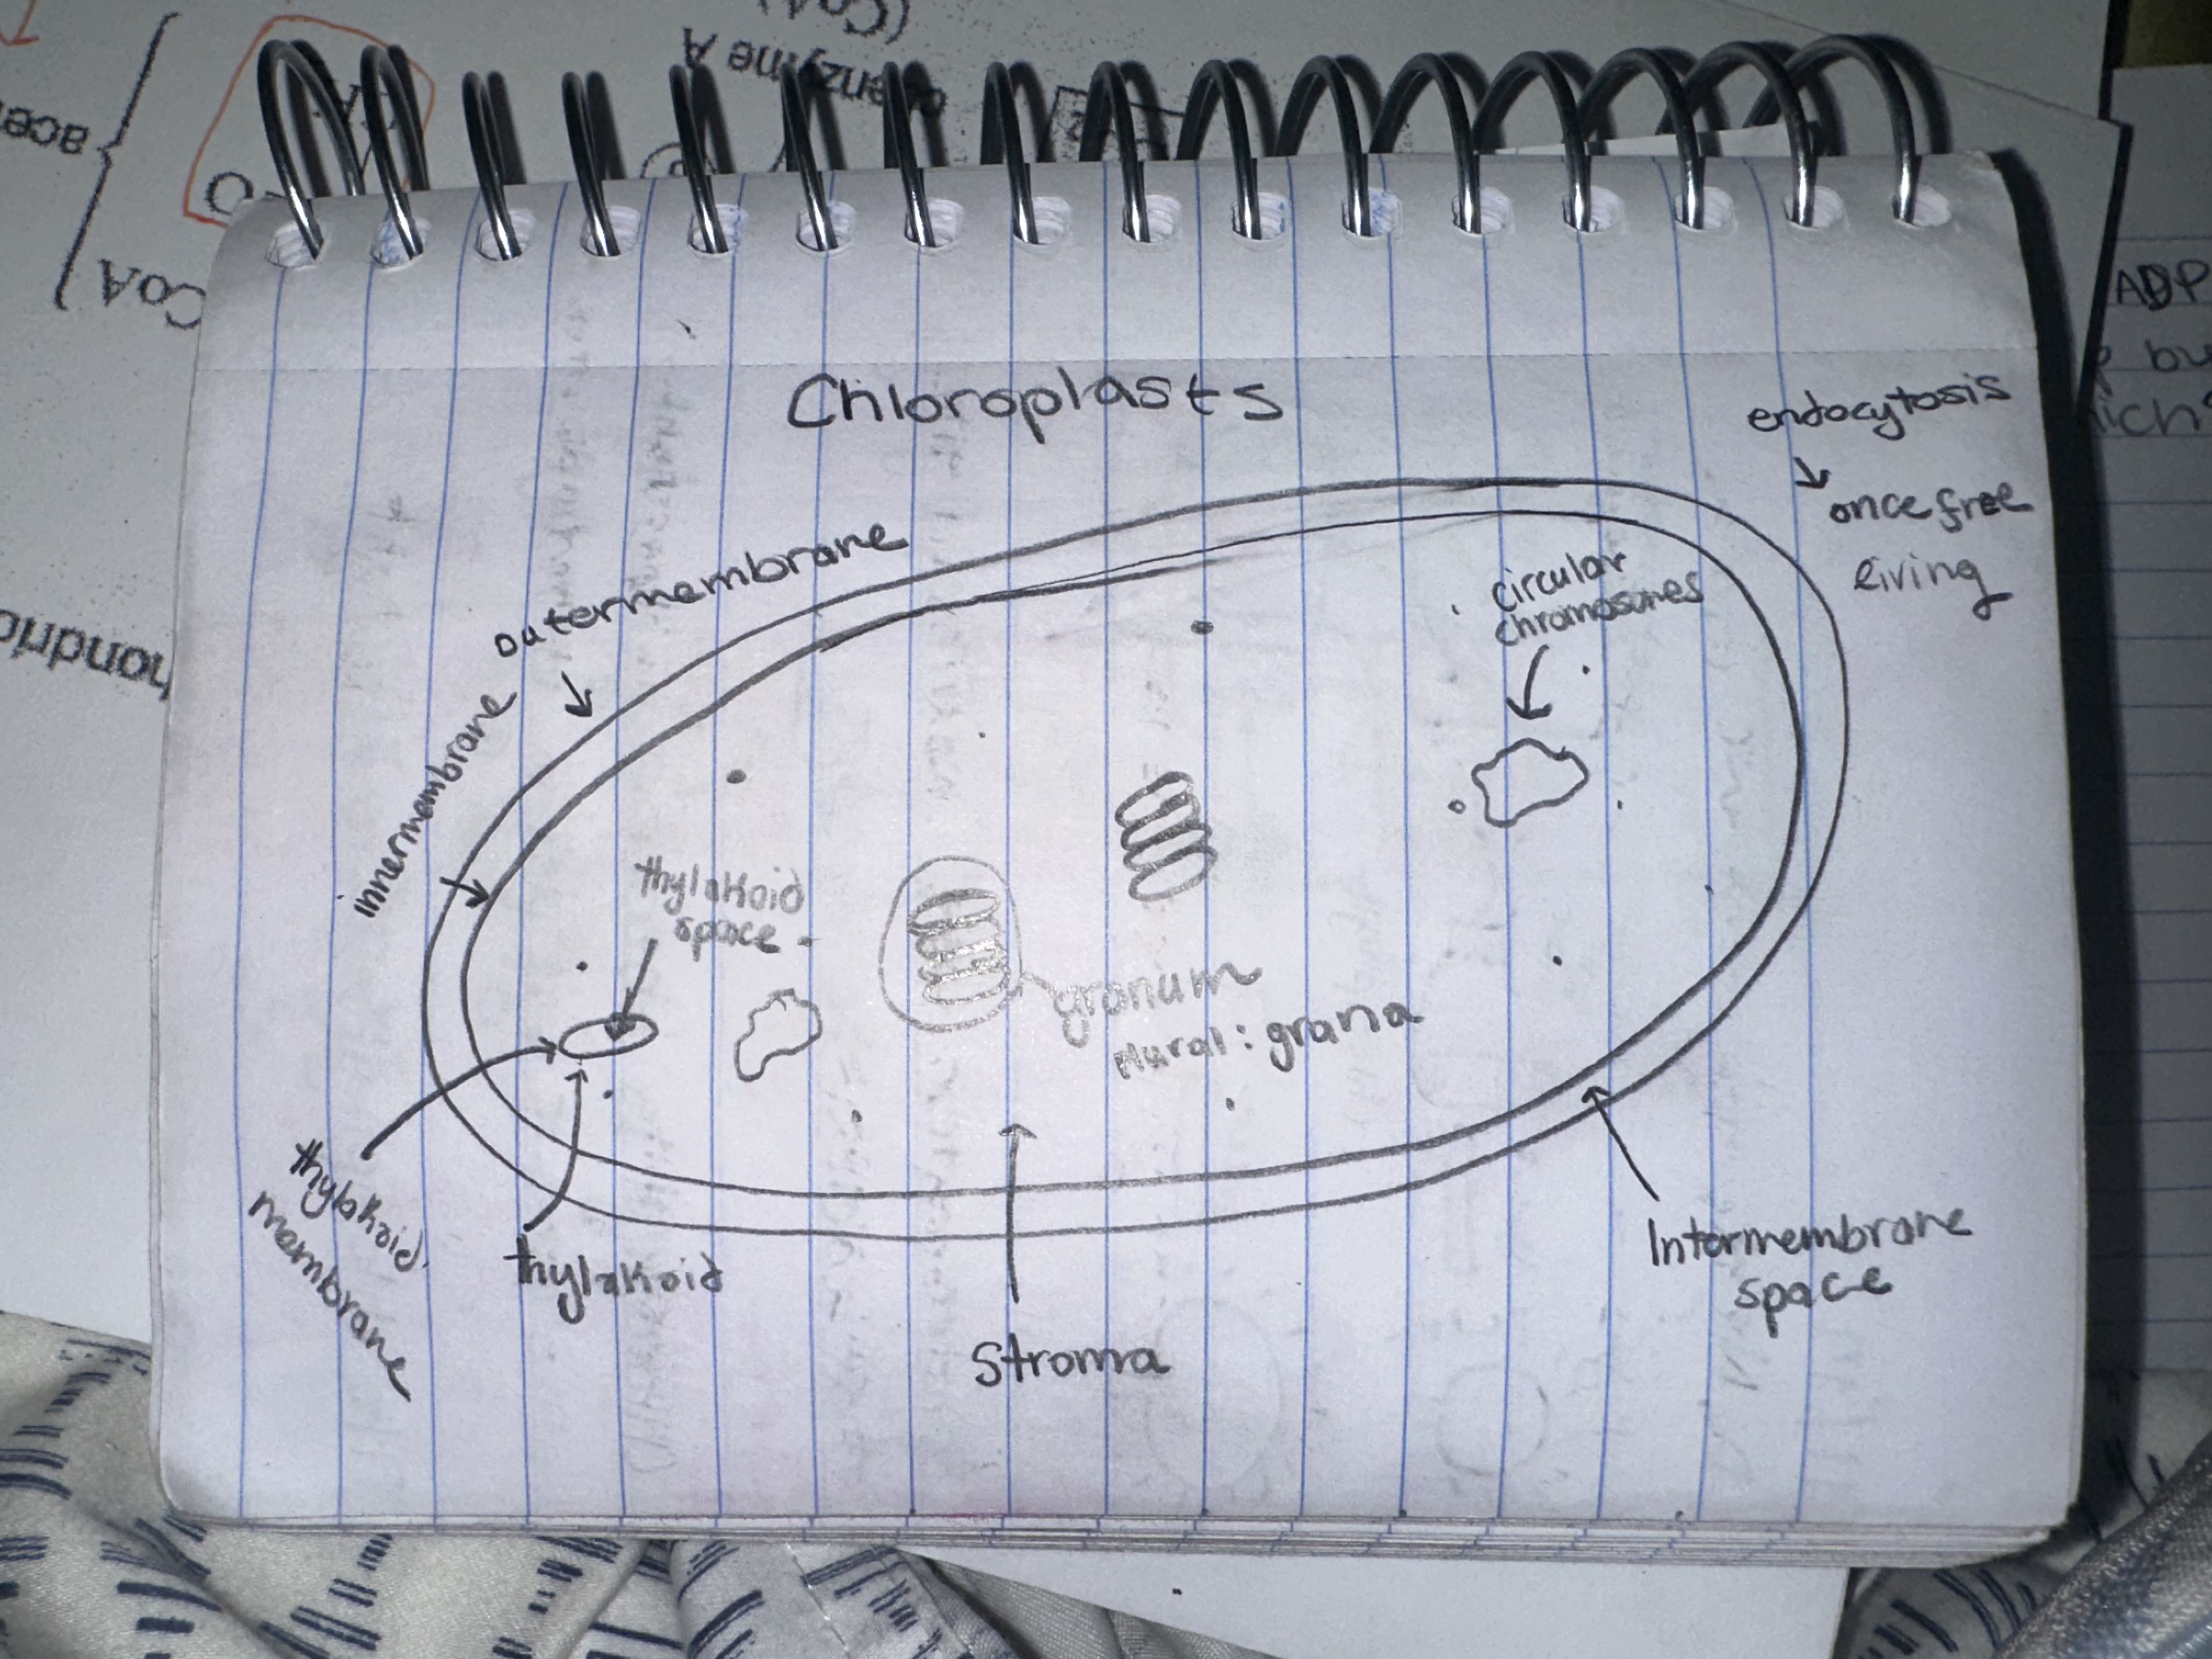 (CoA)
coenzyme A
CoA
ADP
Chloroplasts
endocytosis
once free
living
outermembrane
innermembrane
circular
chromosomes
thylakoid
space
granum
plural: grana
thylakoid
membrane
thylakoid
Stroma
Intermembrane
space